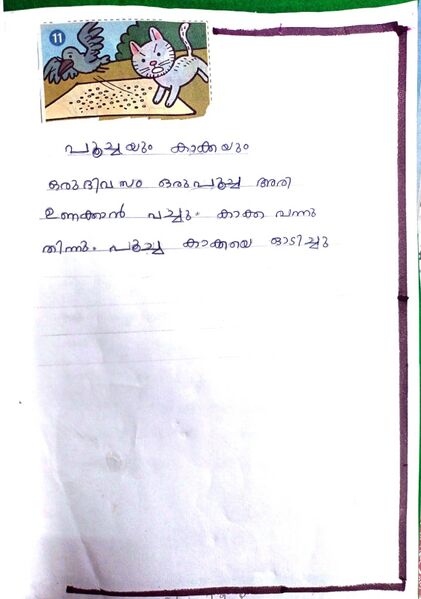 11
പൂച്ചയും കാക്കയും
ഒരു ദിവസം ഒരു പൂച്ച അരി
ഉണക്കാൻ പച്ചു. കാക്ക വന്നു
തിന്നു. പൂച്ച കാക്കയെ ഓടിച്ചു